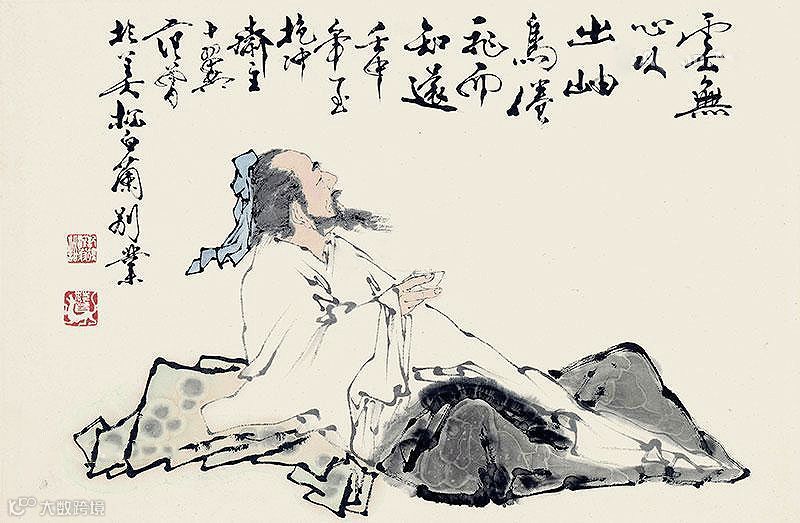 雲無
心以
出岫
鳥倦
飛而
知還
壬申
年
抱冲
齋主
十翼
范曾
於美松白蘭別業
大数跨境